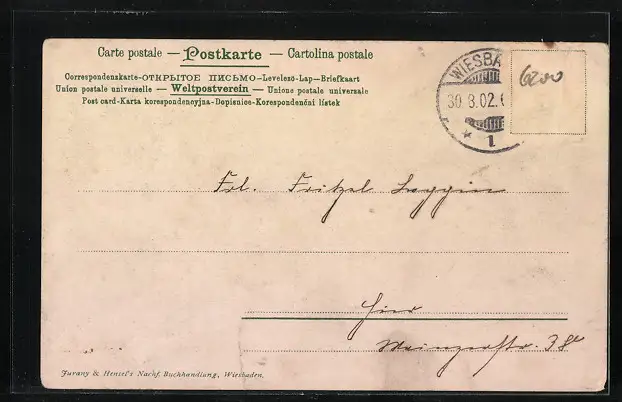 Carte postale — Postkarte — Cartolina postale
Correspondenzkarte-ОТКРЫТОЕ ПИСЬМО-Levelező-Lap-Briefkaart
Union postale universelle — Weltpostverein — Unione postale universale
Post card-Karta korespondencyjna-Dopisnice-Korespondenční lístek
WIESBA
30.8.02.
* 1
6200
Frl. Fritzel
Hier
Mainzerstr. 38
Jurany & Hensel's Nachf. Buchhandlung, Wiesbaden.